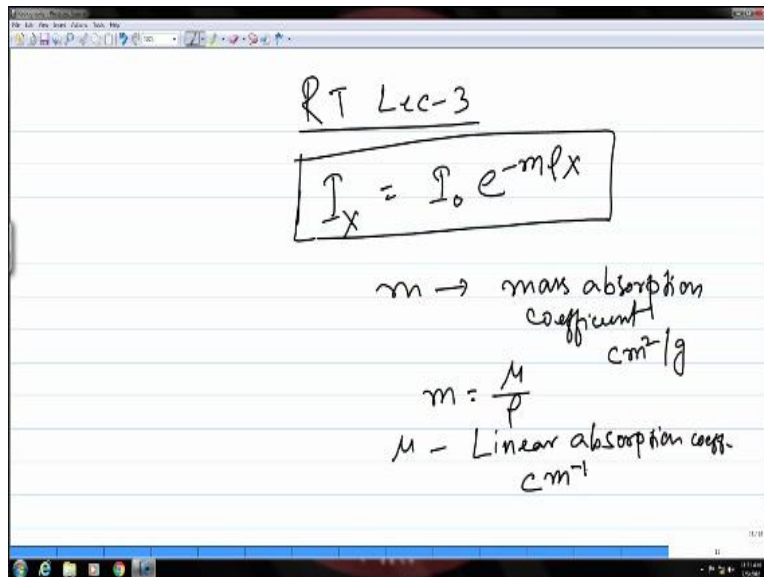 RT Lec-3
I_x = I_0 e^{-mρx}
m → mass absorption
coefficient
cm²/g
m = μ/ρ
μ - Linear absorption coeff.
cm⁻¹